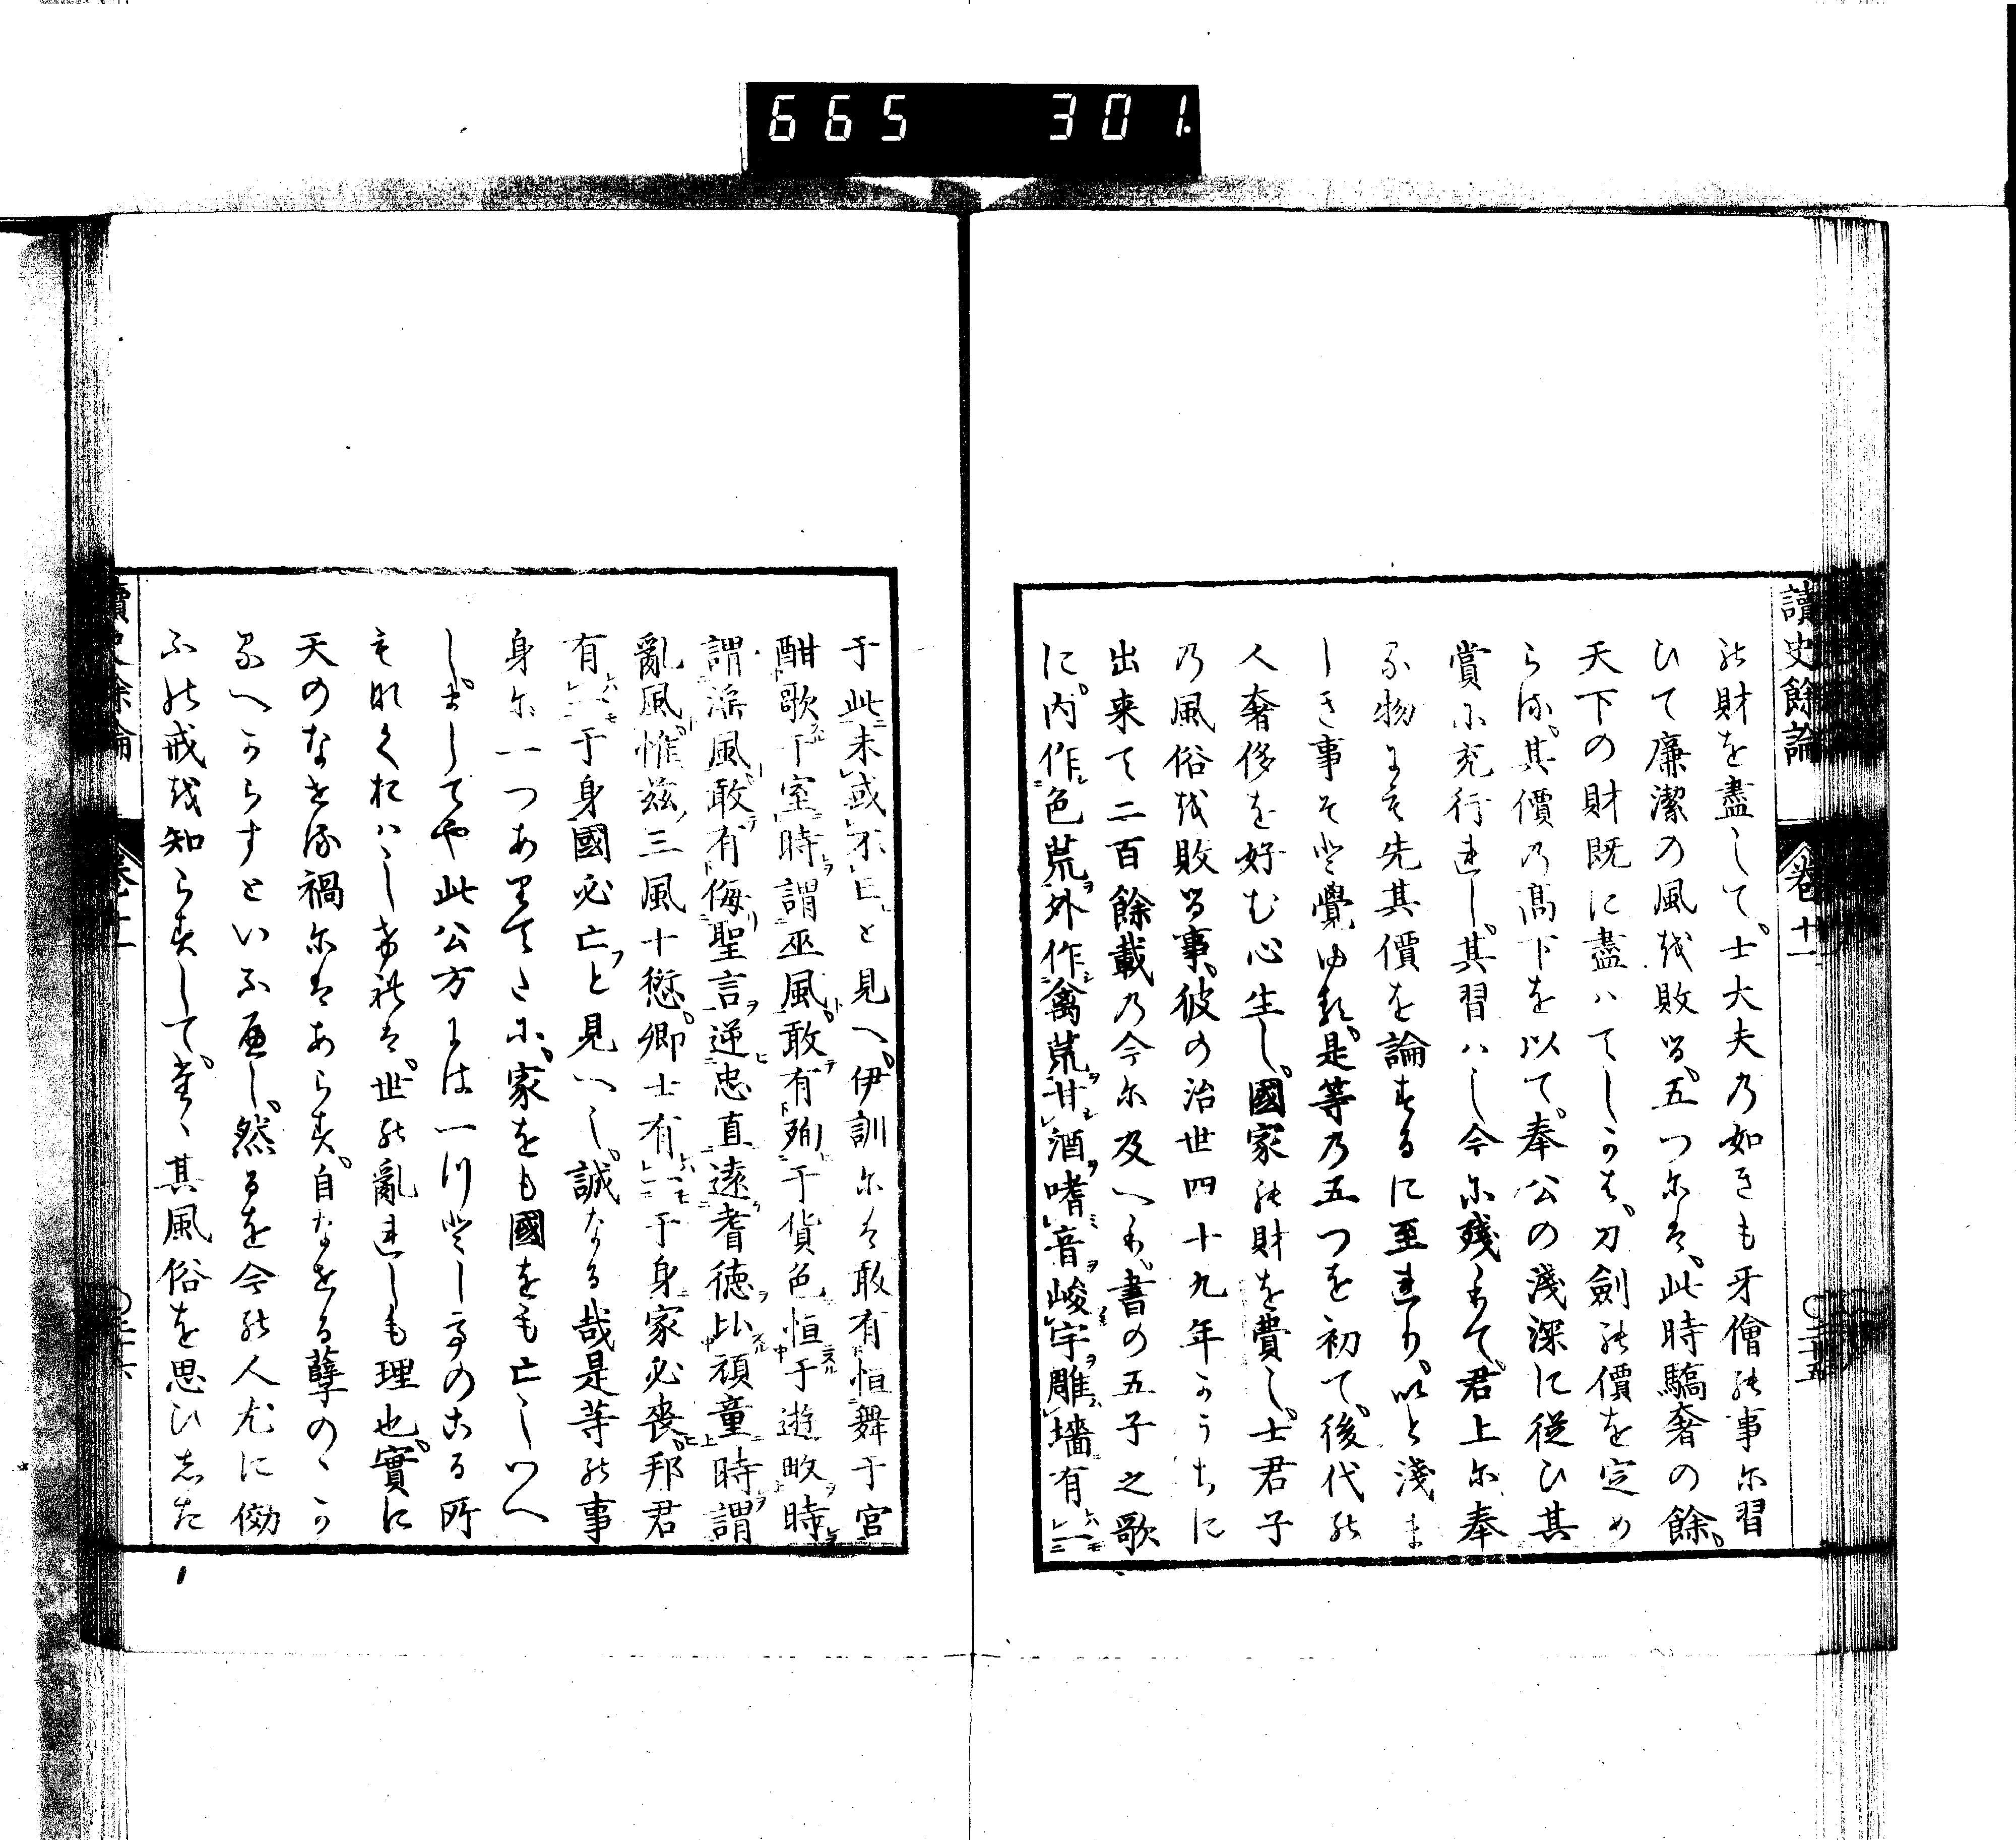 665 301
讀史餘論 卷十一
の財を盡して。士大夫の如きも牙儈の事に習
ひて廉潔の風を敗る。五つには。此時驕奢の餘。
天下の財既に盡はてしかは。刀劍の價を定め
られ。其價の高下を以て。奉公の淺深に從ひ其
賞に充行れし。其習はし今に残りて。君上に奉
る物にも先其價を論するに至れり。いと淺ま
しき事そと覺ゆる。是等の五つを初て。後代の
人奢侈を好む心生し。國家の財を費し。士君子
の風俗を敗る事。彼の治世四十九年かうちに
出来て二百餘載の今に及へり。書の五子之歌
に。内作色荒外作禽荒甘酒嗜音峻宇雕墻有一
于此未或不亡と見へ。伊訓には敢有恒舞于宮
酣歌于室時謂巫風。敢有殉于貨色恒于遊畋時
謂淫風敢有侮聖言逆忠直遠耆德比頑童時謂
亂風。惟茲三風十愆。卿士有一于身家必喪。邦君
有一于身國必亡と見へし。誠なる哉是等の事
身に一つありてたに。家をも國をも亡しつへ
し。ましてや此公方には一つとしてのこる所
もなくおはしけれは。世の亂れしも理也。實に
天のなせる禍にはあらす。自なせる孽のゝか
るへからすといふ へし。然るを今の人尤に傚
ふの戒を知らすして。 其風俗を思ひした
讀史餘論 卷十一